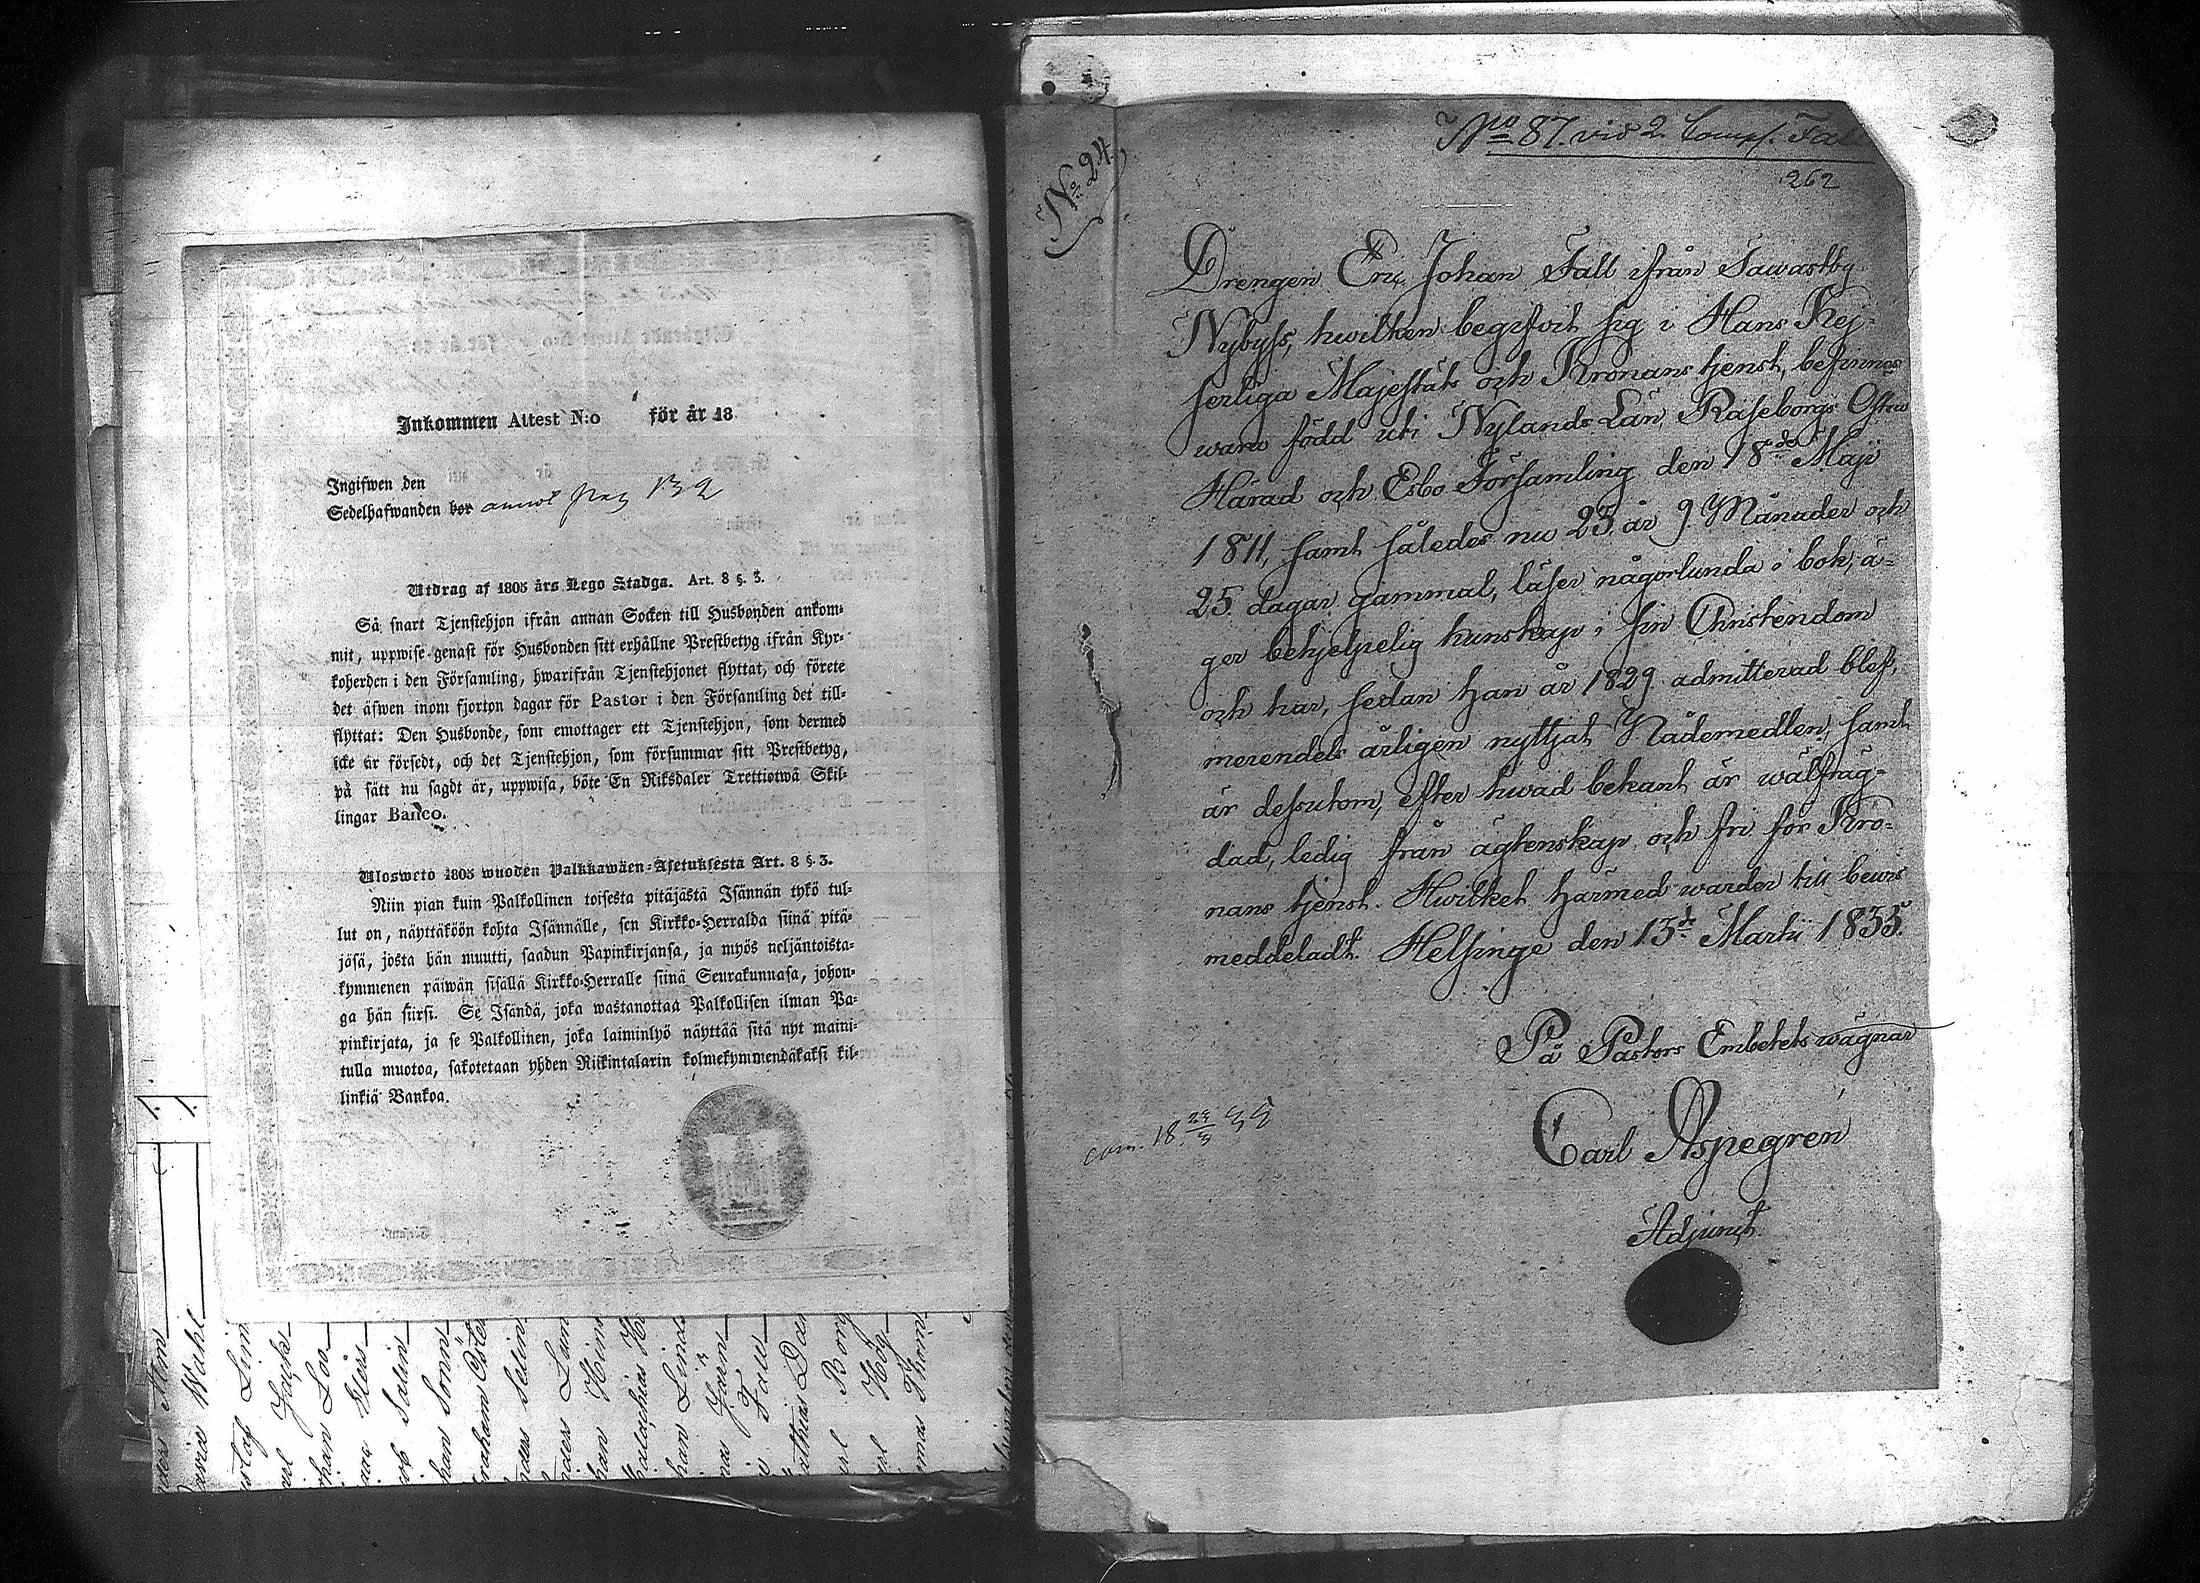 Inkommen Attest N:o för år 18
Ingifwen den
Sedelhafwanden bor annot pag 132
Utdrag af 1805 års Lego Stadga. Art. 8 §. 3.
Så snart Tjenstehjon ifrån annan Socken till Husbonden ankom-
mit, uppwise genast för Husbonden sitt erhållne Prestbetyg ifrån Kyr-
koherden i den Församling, hwarifrån Tjenstehjonet flyttat, och förete
det äfwen inom fjorton dagar för Pastor i den Församling det till-
flyttat: Den Husbonde, som emottager ett Tjenstehjon, som dermed
icke är försedt, och det Tjenstehjon, som försummar sitt Prestbetyg,
på sätt nu sagdt är, uppwisa, böte En Riksdaler Trettiotwå Skil-
lingar Banco.
Ulosweto 1805 wuoden Palkkawäen-Asetuksesta Art. 8 §. 3.
Niin pian kuin Palkollinen toisesta pitäjästä Isännän tykö tul-
lut on, näyttäköön kohta Isännälle, sen Kirkko-Herralda siinä pitä-
jäsä, josta hän muutti, saadun Papinkirjansa, ja myös neljäntoista-
kymmenen päiwän sisällä Kirkko-Herralle siinä Seurakunnasa, johon-
ga hän siirsi. Se Isändä, joka wastanottaa Palkollisen ilman Pa-
pinkirjata, ja se Palkollinen, joka laiminlyö näyttää sitä nyt maini-
tulla muotoa, sakotetaan yhden Riikintalarin kolmekymmendäkaksi kil-
linkiä Bankoa.
1. 1.
Wahl
Lind
Loo
Salin
Abraham Öster
Selin
Johan Lind
Höög
No 24
No 87. vid 2. Comp. Fall
262
Drengen Eric Johan Fall ifrån Sawastby
Nybyss, hwilken begifvit sig i Hans Kej-
serliga Majestäts och Kronans tjenst, befinnes
wara född uti Nylands Län, Raseborgs Östra
Härad och Esbo Församling den 18de Maji
1811, samt således nu 23 år 9 Månader och
25 dagar gammal, läser någorlunda i bok, ä-
ger behjelpelig kunskap i sin Christendom
och har, sedan han år 1829 admitterad blef,
merendels årligen nyttjat Nådemedlen, samt
är dessutom, efter hwad bekant är wälfräg-
dad, ledig från ägtenskap och fri för Kro-
nans tjenst. Hwilket härmed warder till bewis
meddeladt. Helsinge den 13de Martii 1835.
På Pastors Embetets wägnar
Carl Aspegren
Adjunct
com. 18 24/3 35